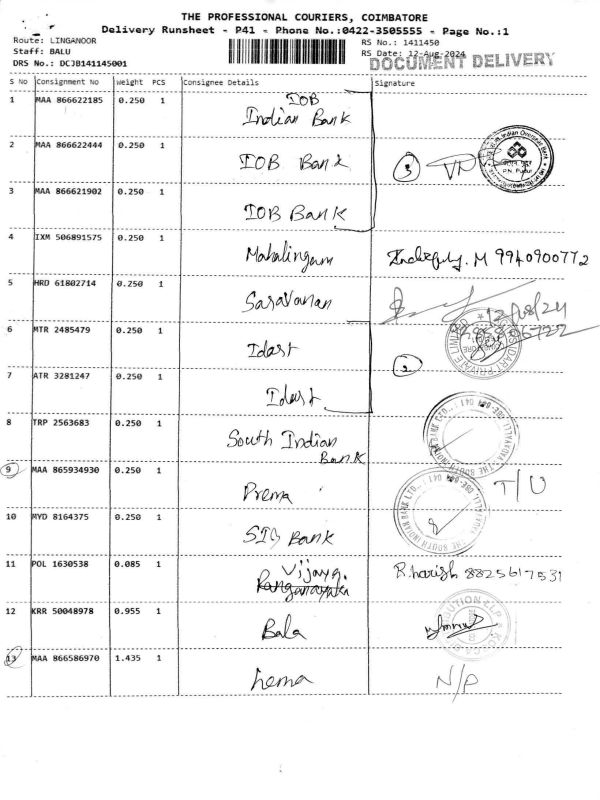 THE PROFESSIONAL COURIERS, COIMBATORE
Delivery Runsheet - P41 - Phone No.:0422-3505555 - Page No.:1
Route: LINGANOOR
Staff: BALU
DRS No.: DCJB141145001
RS No.: 1411450
RS Date: 12-Aug-2024
DOCUMENT DELIVERY
S No Consignment No Weight PCS Consignee Details Signature
1 MAA 866622185 0.250 1 IOB
Indian Bank
2 MAA 866622444 0.250 1 IOB Bank
3
Indian Overseas Bank
P.N. Pudur
3 MAA 866621902 0.250 1 IOB Bank
4 IXM 506891575 0.250 1 Mahalingam M 9940900772
5 HRD 61802714 0.250 1 Saravanan
12/08/24
6 MTR 2485479 0.250 1 Idart
IDART PRIVATE LIMITED
7 ATR 3281247 0.250 1 Idart
2
8 TRP 2563683 0.250 1 South Indian
Bank
9 MAA 865934930 0.250 1 Prema T/U
THE SOUTH INDIAN BANK LTD.
10 MYD 8164375 0.250 1 SIB Bank
11 POL 1630538 0.085 1 Vijaya.
R.harish 8825617531
12 KRR 50048978 0.955 1 Bala
13 MAA 866586970 1.435 1 hema N/P